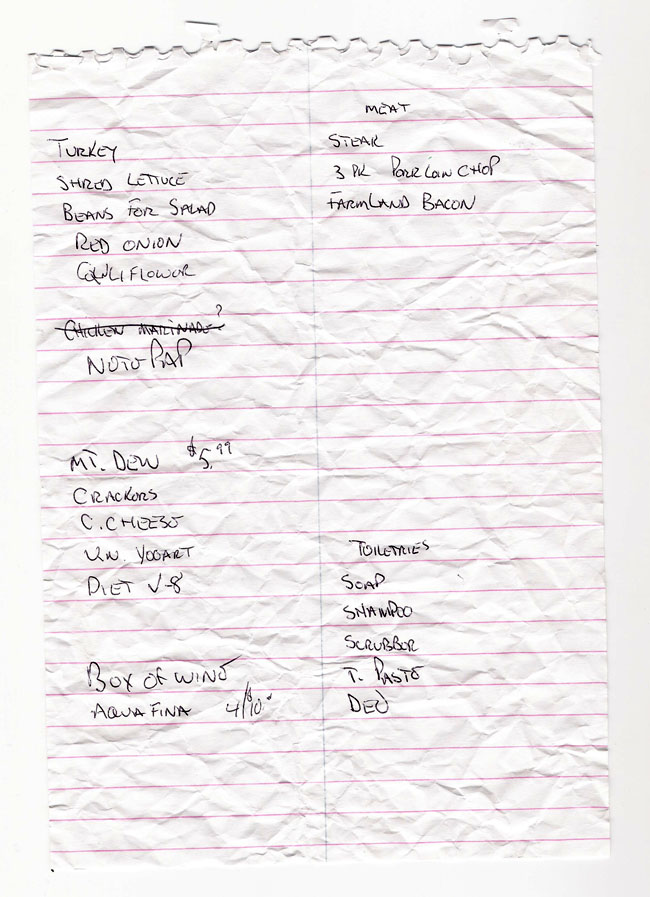 TURKEY
SHRED LETTUCE
BEANS FOR SALAD
RED ONION
CAULIFLOWOR
CHICKEN MARINADE?
NOTO PAP
MT. DEW $5.99
CRACKORS
C. CHEESE
VAN. YOGART
DIET V-8
BOX OF WINE
AQUA FINA 4/$10.
MEAT
STEAK
3 PK PORK LOIN CHOP
FARMLAND BACON
TOILETRIES
SOAP
SHAMPOO
SCRUBBOR
T. PASTE
DEO